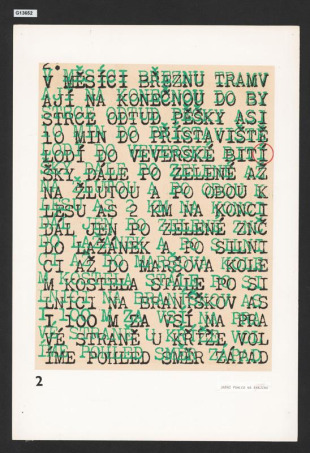 G13652
6.
V MĚSÍCI BŘEZNU TRAMV
AJÍ NA KONEČNOU DO BY
STRCE ODTUD PĚŠKY ASI
10 MIN DO PŘÍSTAVIŠTĚ
LODÍ DO VEVERSKÉ BITÍ
ŠKY DÁLE PO ZELENÉ AŽ
NA ŽLUTOU A PO OBOU K
LESU AS 2 KM NA KONCI
DÁL JEN PO ZELENÉ ZNČ
DO LAŽÁNEK A PO SILNI
CI AŽ DO MARŠOVA KOLE
M KOSTELA STÁLE PO SI
LNICI NA BRANIŠKOV AS
I 100 M ZA VSÍ NA PRA
VÉ STRANĚ U KŘÍŽE VOL
ÍME POHLED SMĚR ZÁPAD
2